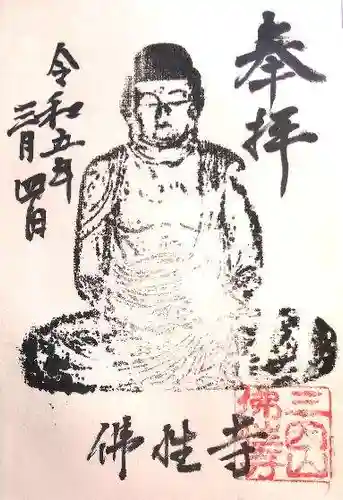 奉拝
令和五年
三月四日
佛性寺
三内山
佛性寺